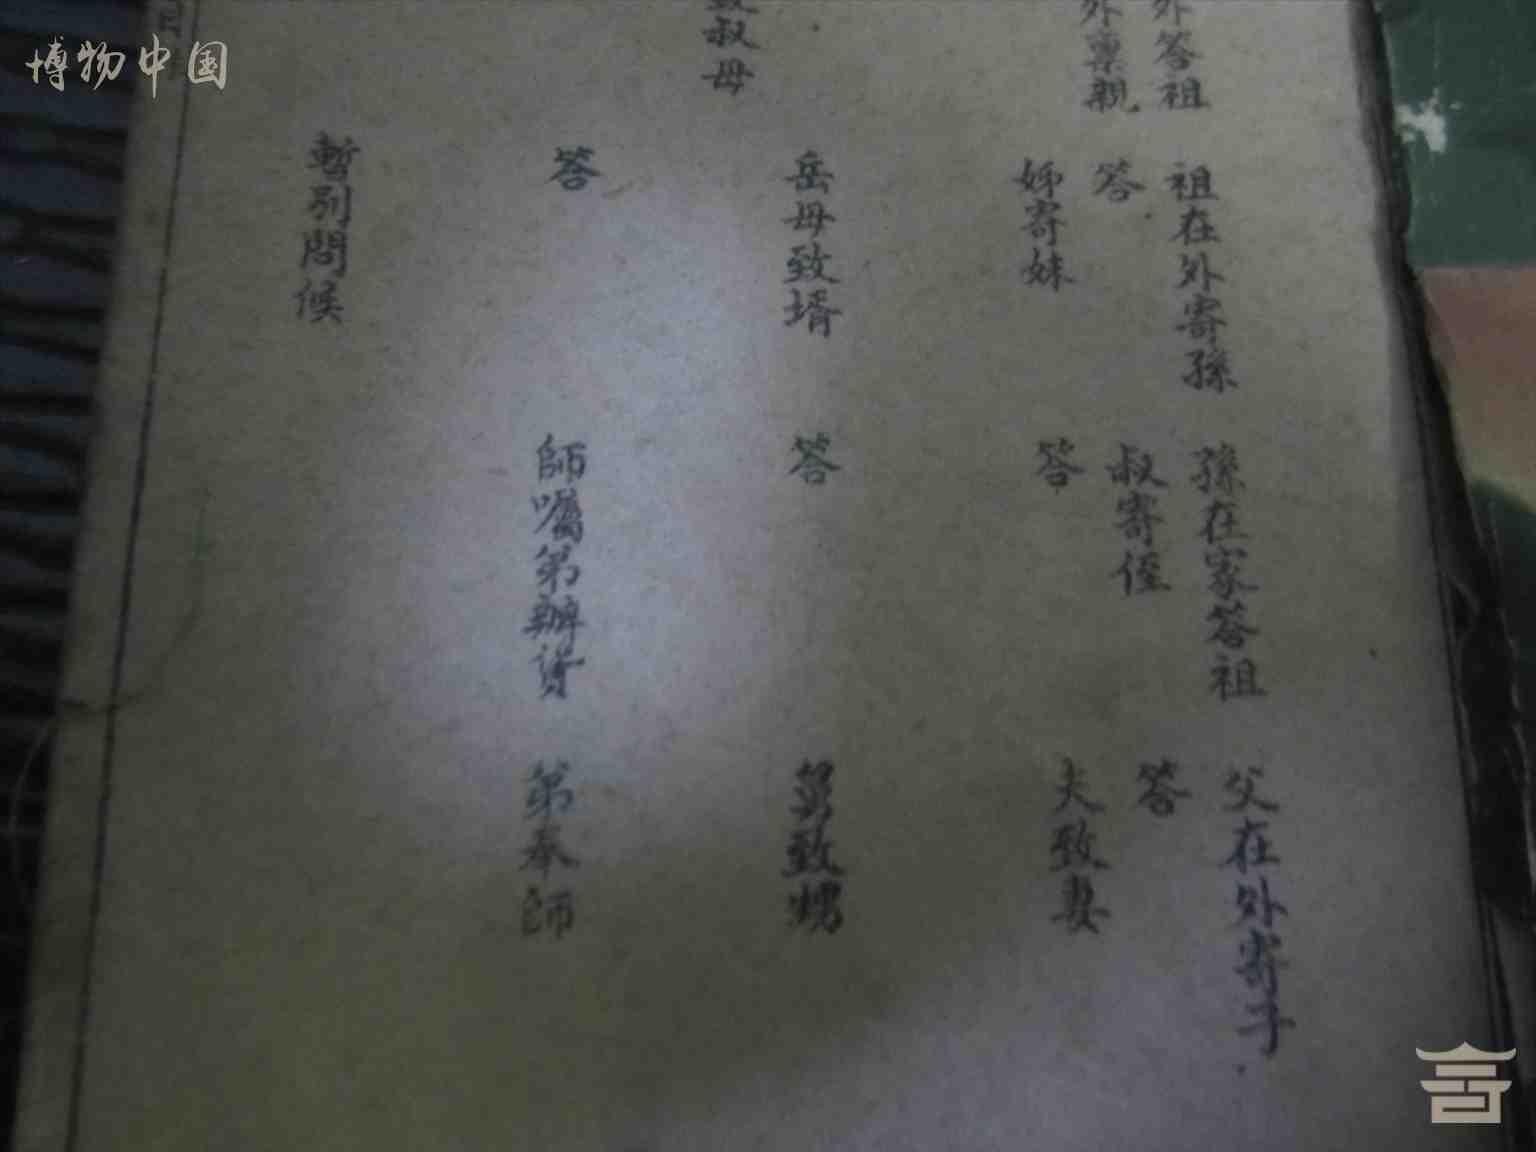 博物中国
外答祖 祖在外寄孫 孫在家答祖 父在外寄子
外稟親 答 叔寄侄 答
姊寄妹 答 夫致妻
致叔母 岳母致壻 答 舅致甥
答 師囑第辦貨 第奉師
暫別問候